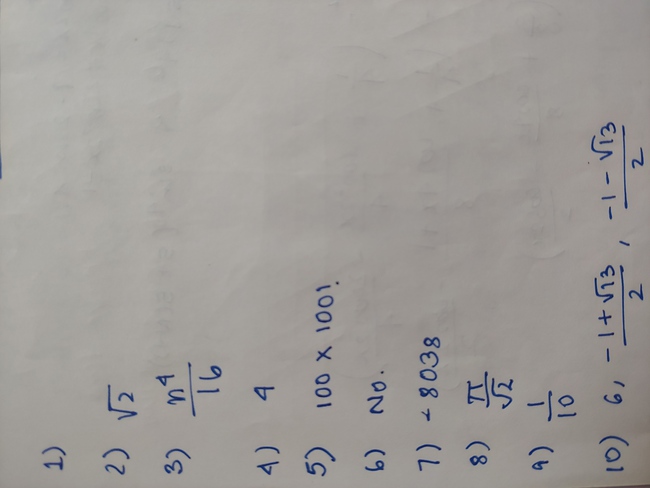 1)
2) √2
3) n⁴/16
4) 4
5) 100 × 100!
6) No.
7) - 8038
8) π/√2
9) 1/10
10) 6, (-1+√13)/2, (-1-√13)/2